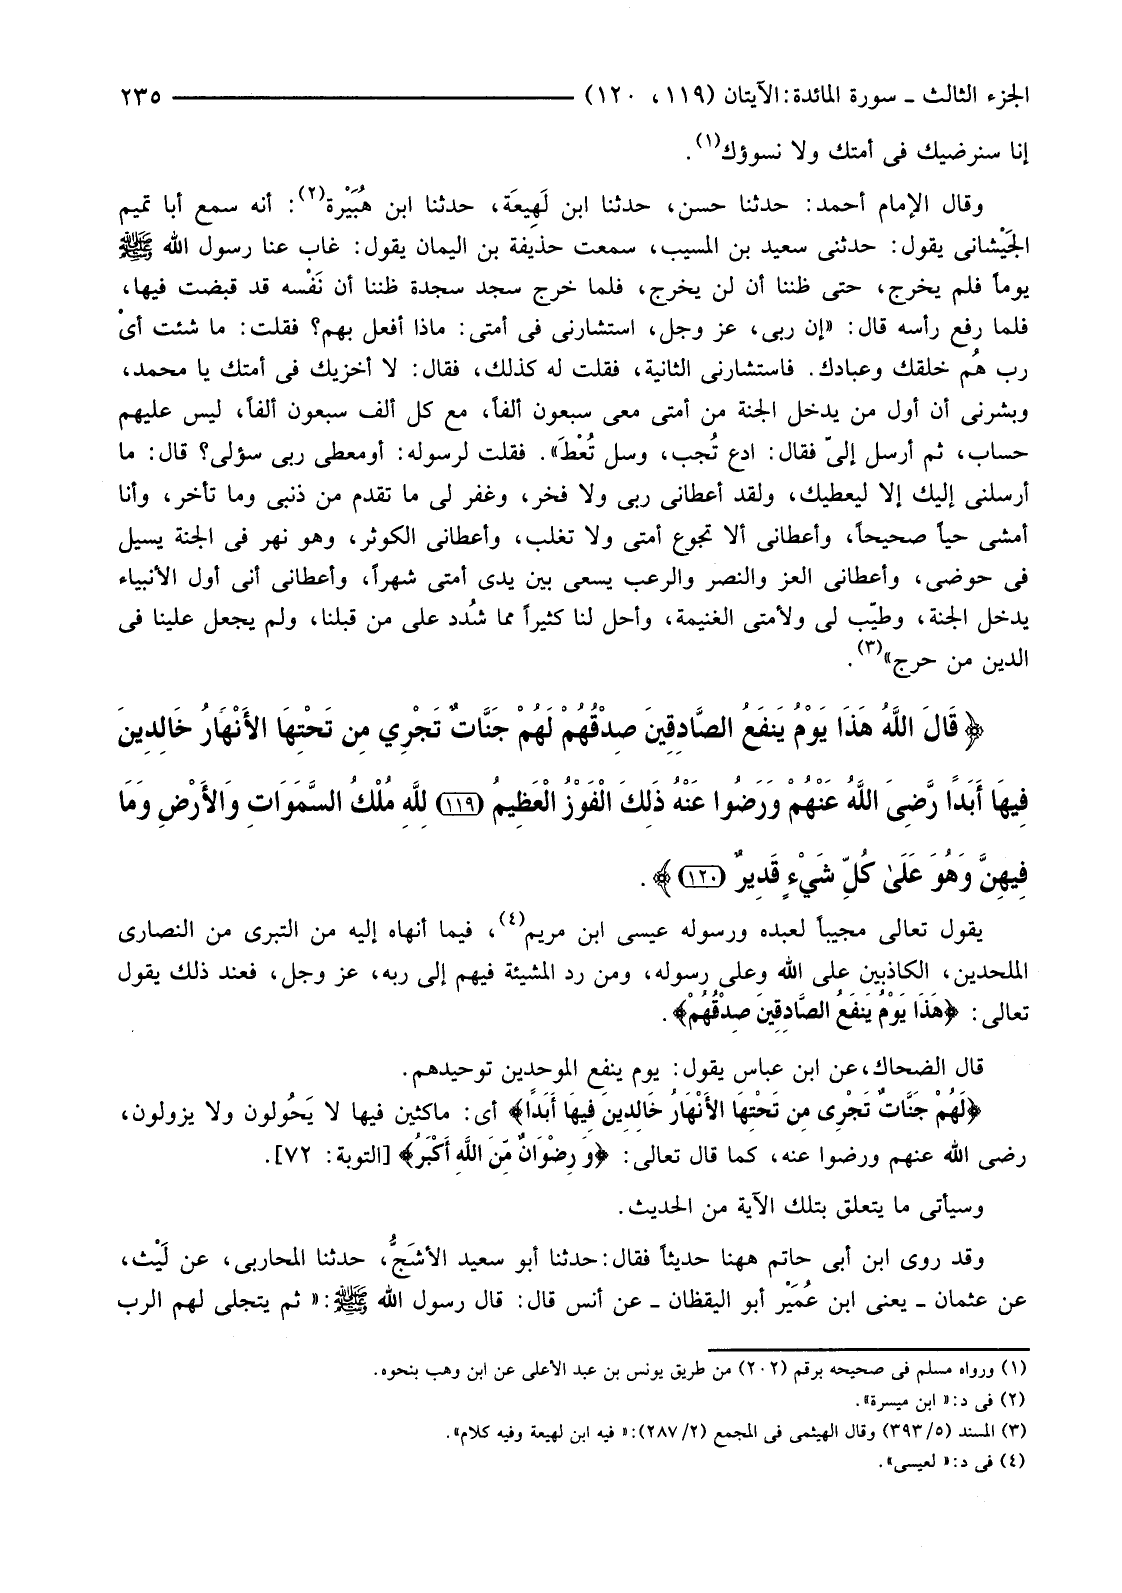 الجزء الثالث ـ سورة المائدة: الآيتان (١١٩، ١٢٠) ٢٣٥
إنا سنرضيك فى أمتك ولا نسوؤك(١).
وقال الإمام أحمد: حدثنا حسن، حدثنا ابن لَهِيعَة، حدثنا ابن هُبَيْرة(٢): أنه سمع أبا تميم
الجَيْشانى يقول: حدثنى سعيد بن المسيب، سمعت حذيفة بن اليمان يقول: غاب عنا رسول الله ﷺ
يوماً فلم يخرج، حتى ظننا أن لن يخرج، فلما خرج سجد سجدة ظننا أن نَفْسه قد قبضت فيها،
فلما رفع رأسه قال: «إن ربى، عز وجل، استشارنى فى أمتى: ماذا أفعل بهم؟ فقلت: ما شئت أىْ
رب هُم خلقك وعبادك. فاستشارنى الثانية، فقلت له كذلك، فقال: لا أخزيك فى أمتك يا محمد،
وبشرنى أن أول من يدخل الجنة من أمتى معى سبعون ألفاً، مع كل ألف سبعون ألفاً، ليس عليهم
حساب، ثم أرسل إلىّ فقال: ادع تُجب، وسل تُعْطَ». فقلت لرسوله: أومعطى ربى سؤلى؟ قال: ما
أرسلنى إليك إلا ليعطيك، ولقد أعطانى ربى ولا فخر، وغفر لى ما تقدم من ذنبى وما تأخر، وأنا
أمشى حياً صحيحاً، وأعطانى ألا تجوع أمتى ولا تغلب، وأعطانى الكوثر، وهو نهر فى الجنة يسيل
فى حوضى، وأعطانى العز والنصر والرعب يسعى بين يدى أمتى شهراً، وأعطانى أنى أول الأنبياء
يدخل الجنة، وطيّب لى ولأمتى الغنيمة، وأحل لنا كثيراً مما شُدد على من قبلنا، ولم يجعل علينا فى
الدين من حرج»(٣).
﴿قَالَ اللَّهُ هَذَا يَوْمُ يَنفَعُ الصَّادِقِينَ صِدْقُهُمْ لَهُمْ جَنَّاتٌ تَجْرِي مِن تَحْتِهَا الأَنْهَارُ خَالِدِينَ
فِيهَا أَبَدًا رَّضِيَ اللَّهُ عَنْهُمْ وَرَضُوا عَنْهُ ذَلِكَ الْفَوْزُ الْعَظِيمُ (١١٩) لِلَّهِ مُلْكُ السَّمَوَاتِ وَالأَرْضِ وَمَا
فِيهِنَّ وَهُوَ عَلَىٰ كُلِّ شَيْءٍ قَدِيرٌ (١٢٠)﴾.
يقول تعالى مجيباً لعبده ورسوله عيسى ابن مريم(٤)، فيما أنهاه إليه من التبرى من النصارى
الملحدين، الكاذبين على الله وعلى رسوله، ومن رد المشيئة فيهم إلى ربه، عز وجل، فعند ذلك يقول
تعالى: ﴿هَذَا يَوْمُ يَنفَعُ الصَّادِقِينَ صِدْقُهُمْ﴾.
قال الضحاك، عن ابن عباس يقول: يوم ينفع الموحدين توحيدهم.
﴿لَهُمْ جَنَّاتٌ تَجْرِى مِن تَحْتِهَا الأَنْهَارُ خَالِدِينَ فِيهَا أَبَدًا﴾ أى: ماكثين فيها لا يَحُولون ولا يزولون،
رضى الله عنهم ورضوا عنه، كما قال تعالى: ﴿وَرِضْوَانٌ مِّنَ اللَّهِ أَكْبَرُ﴾ [التوبة: ٧٢].
وسيأتى ما يتعلق بتلك الآية من الحديث.
وقد روى ابن أبى حاتم ههنا حديثاً فقال: حدثنا أبو سعيد الأشَجُّ، حدثنا المحاربى، عن لَيْث،
عن عثمان ـ يعنى ابن عُمَيْر أبو اليقظان ـ عن أنس قال: قال رسول الله ﷺ: « ثم يتجلى لهم الرب
(١) ورواه مسلم فى صحيحه برقم (٢٠٢) من طريق يونس بن عبد الأعلى عن ابن وهب بنحوه.
(٢) فى د: « ابن ميسرة».
(٣) المسند (٥/ ٣٩٣) وقال الهيثمى فى المجمع (٢/ ٢٨٧): « فيه ابن لهيعة وفيه كلام».
(٤) فى د: « لعيسى».